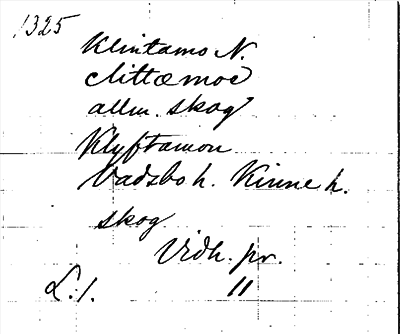 1325
Klintamo N.
clittæmoe
allm. skog
Klyftamon
Vadsbo h. Kinne h.
skog
Vidh. pr.
L: 1. 11